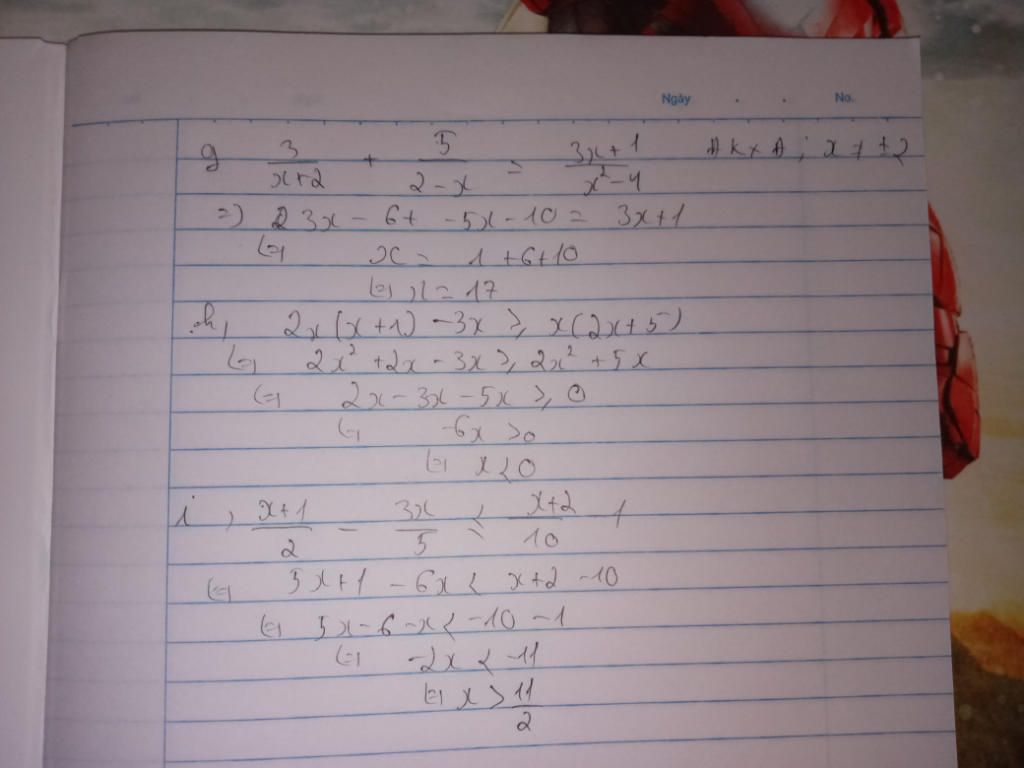 Ngày . . No.
g 3/(x+2) + 5/(2-x) = (3x+1)/(x²-4) ĐKXĐ ; x ≠ ±2
=) 3x - 6 + -5x - 10 = 3x+1
(=) x = 1 +6+10
(=) x = 17
h, 2x(x+1) - 3x ≥ x(2x+5)
(=) 2x² + 2x - 3x ≥ 2x² + 5x
(=) 2x - 3x - 5x ≥ 0
(=) -6x ≥ 0
(=) x < 0
i, (x+1)/2 - 3x/5 ≤ (x+2)/10 - 1
(=) 5x+1 - 6x < x+2 -10
(=) 5x-6-x < -10 -1
(=) -2x < -11
(=) x > 11/2